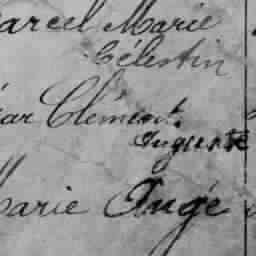 arcel Marie
Célestin
ar Clément.
Auguste
Marie Angé